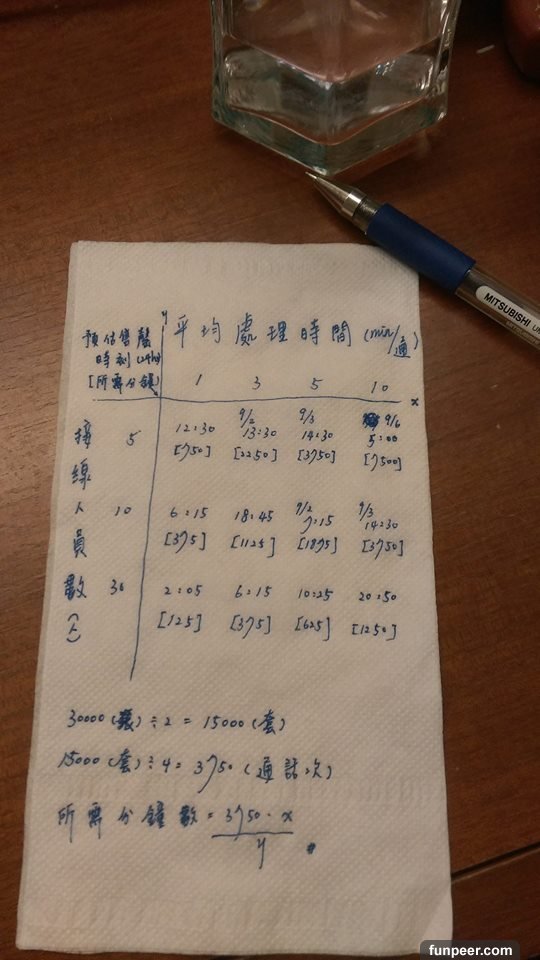 MITSUBISHI
y
預估售罄 平均處理時間 (min/通)
時刻 (24hr)
[所需分鐘] 1 3 5 10 x
接線人員數(人)
9/2 9/3 9/6
5 12:30 13:30 14:30 5:00
[750] [2250] [3750] [7500]
9/2 9/3
10 6:15 18:45 7:15 14:30
[375] [1125] [1875] [3750]
30 2:05 6:15 10:25 20:50
[125] [375] [625] [1250]
30000(張)÷2 = 15000(套)
15000(套)÷4 = 3750(通話次)
所需分鐘數 = 3750·x
y
funpeer.com